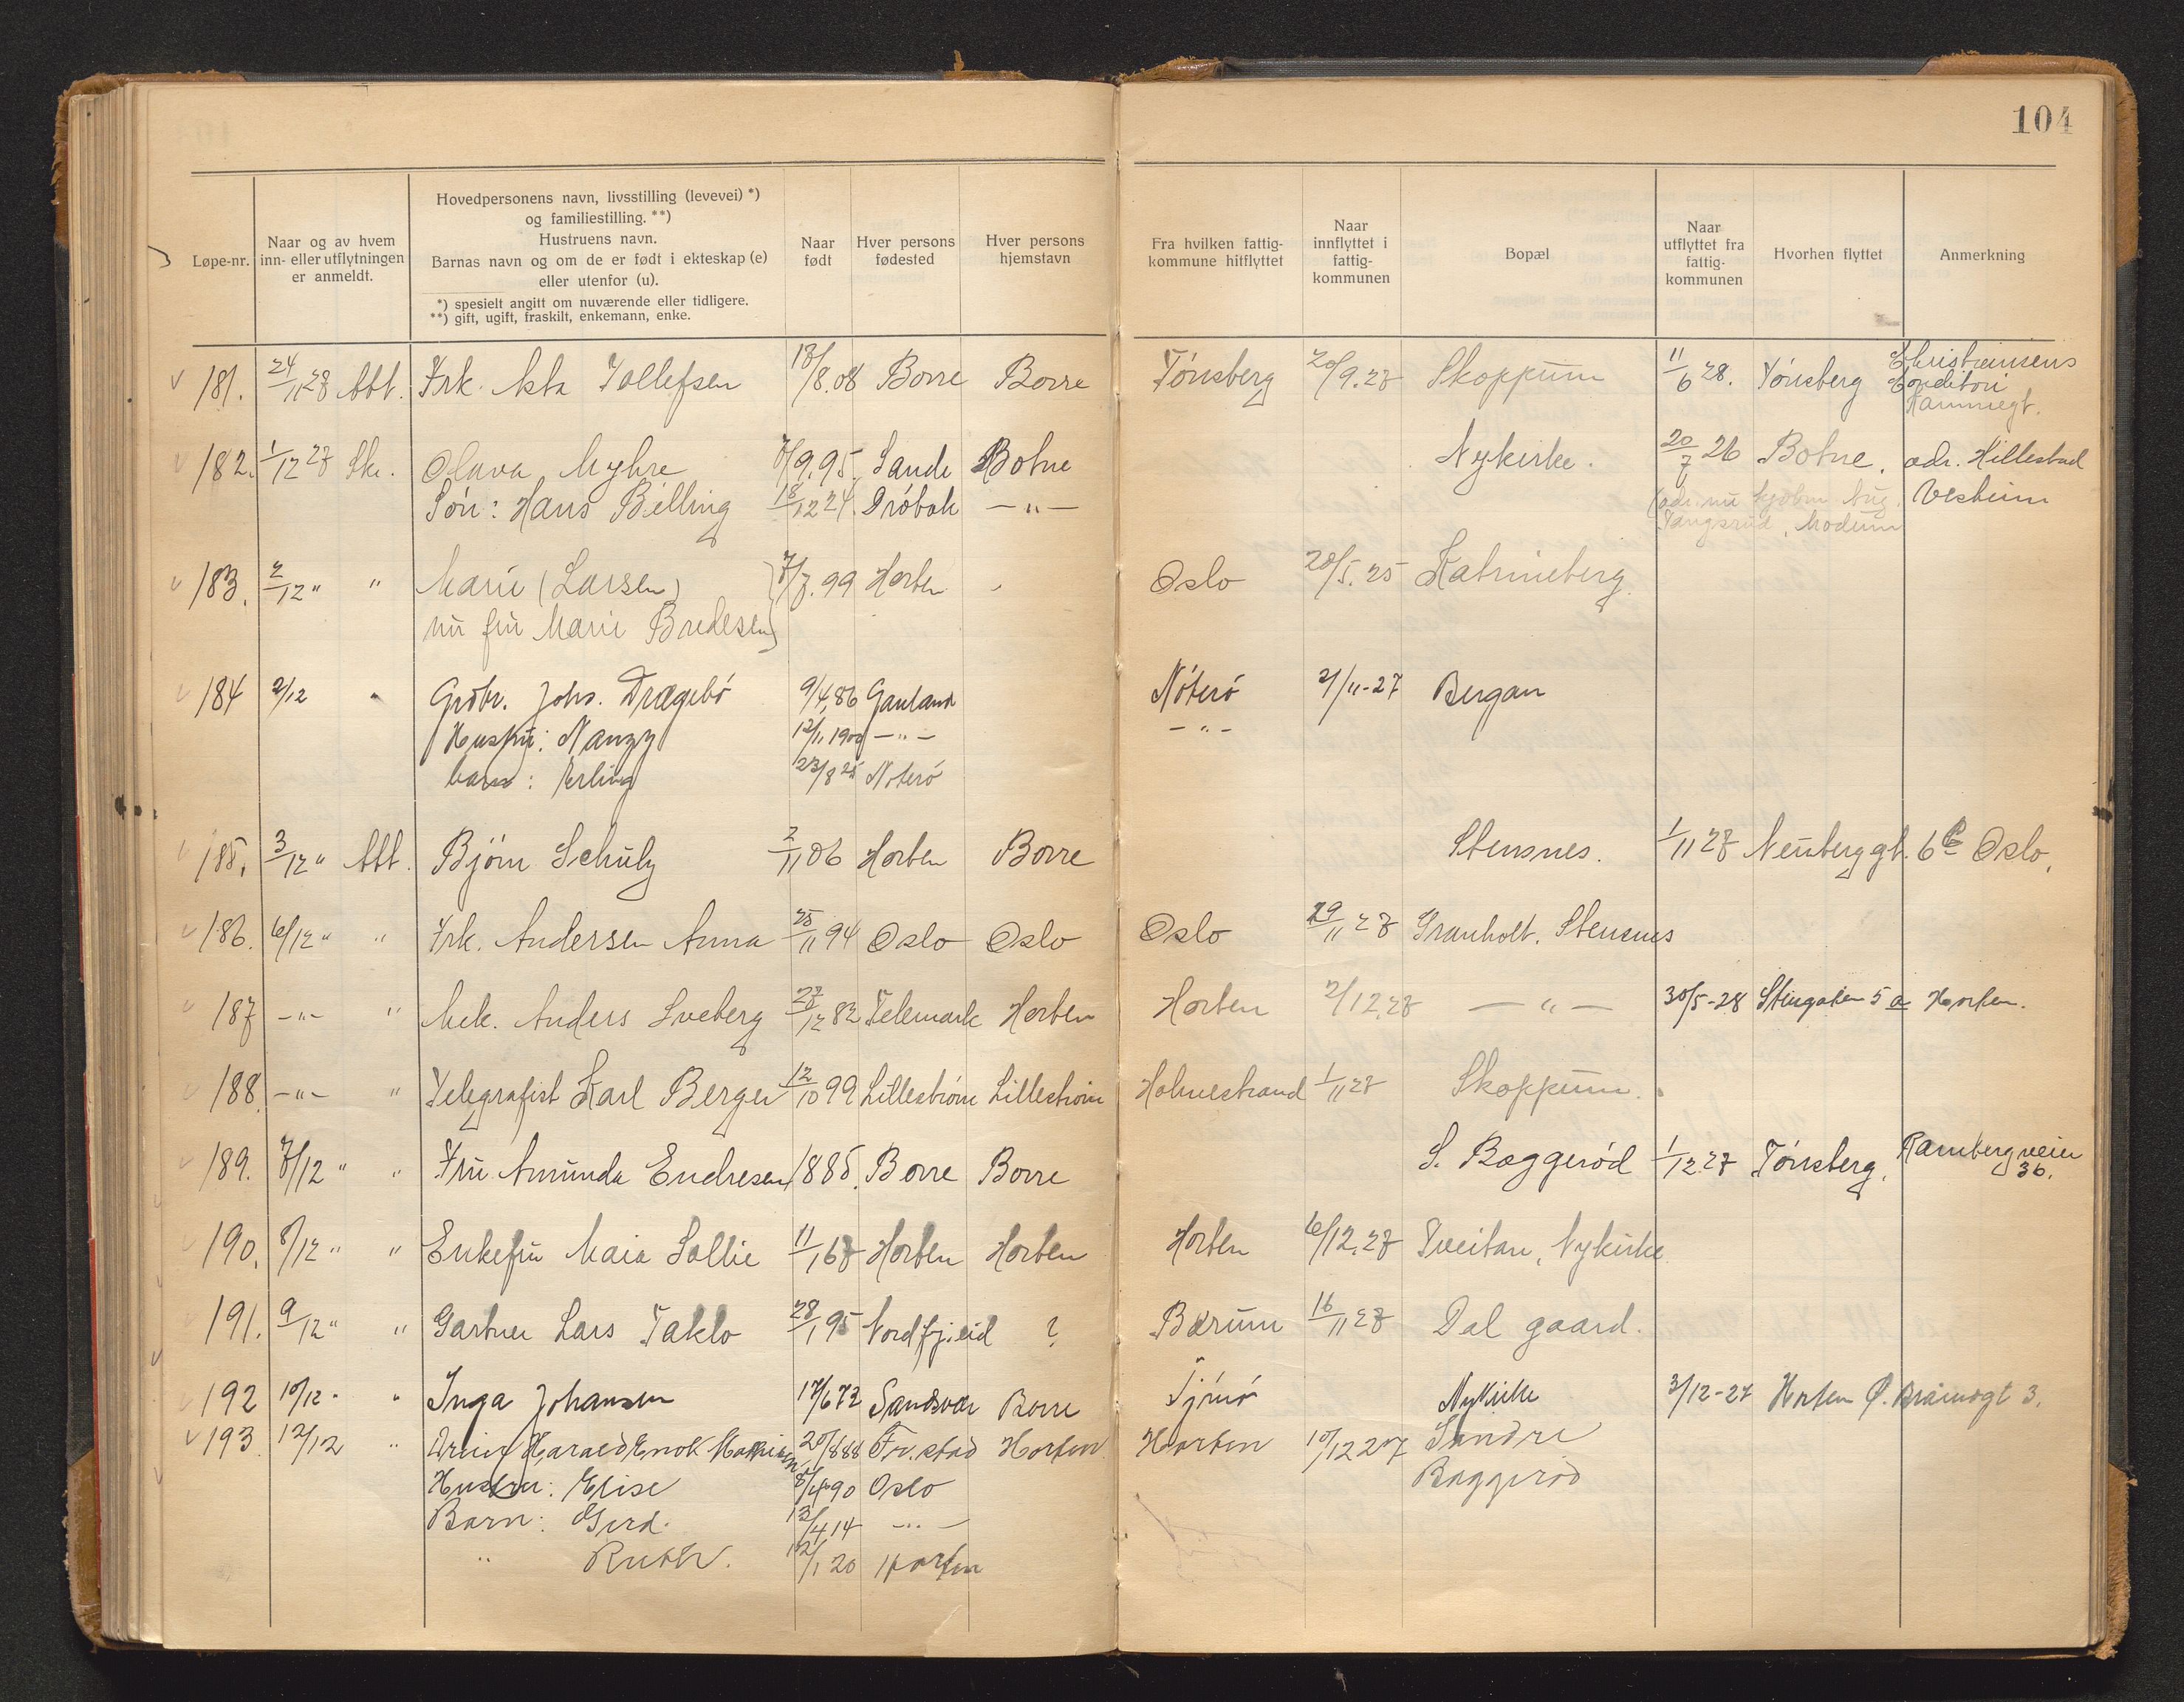 104
Løpe-nr.
Naar og av hvem
inn- eller utflytningen
er anmeldt.
Hovedpersonens navn, livsstilling (levevei) *)
og familiestilling. **)
Hustruens navn.
Barnas navn og om de er født i ekteskap (e)
eller utenfor (u).
*) spesielt angitt om nuværende eller tidligere.
**) gift, ugift, fraskilt, enkemann, enke.
Naar
født
Hver persons
fødested
Hver persons
hjemstavn
Fra hvilken fattig-
kommune hitflyttet
Naar
innflyttet i
fattig-
kommunen
Bopæl
Naar
utflyttet fra
fattig-
kommunen
Hvorhen flyttet
Anmerkning
181. 24/11 27 Att. Frk. Asta Tollefsen 13/8.08 Borre Borre Tønsberg 20/9.27 Skoppum 11/6 28. Tønsberg Christiansens
Konditori
182. 1/12 27 Skr. Olava Myhre 7/9.95 Sande Botne Nykirke. 20/7 26 Botne. adr. Hillestad
Søn: Hans Billing 18/12 24. Drøbak — " — (adr. nu Aug. Vestheim
Tangsrud, Modum
183. 2/12 " " Marie (Larsen) 7/7.99 Horten Oslo 20/5.25 Katrineberg.
nu fru Marie Bredesen
184 2/12 " Grdbr. Johs. Dragebø 9/4,86 Gauland Nøterø 2/11-27 Bergan
Hustru: Nanzy 12/11 1900 — " — — " —
barn: Erling 23/8 25 Nøterø
185. 3/12 " Att. Bjørn Schulz 2/11 06 Horten Borre Stensnes. 1/11 27 Neuberggt. 6 c Oslo.
186. 6/12 " " Frk. Andersen Anna 25/11 94 Oslo Oslo Oslo 29/11 27 Granholt. Stensnes
187 — " — " Mek. Anders Sveberg 27/12 82 Telemark Horten Horten 2/12.27 — " — 30/5-28 Stengaten 5 a Horten.
188. — " — " Telegrafist Karl Berger 12/10 99 Lillestrøm Lillestrøm Holmestrand 1/11 27 Skoppum.
189. 7/12 " " Fru Amunda Endresen 1885. Borre Borre S. Baggerød 1/12.27 Tønsberg. Rambergveien
36.
190. 8/12 " " Enkefru Maia Sollie 11/1 67 Horten Horten Horten 6/12.27 Tveitan, Nykirke
191. 9/12 " " Gartner Lars Taklo 28/1 95 Nordfj.eid ? Bærum 16/11 27 Dal gaard.
192 10/12 " " Inga Johansen 17/6 72 Sandsvær Borre Tjømø Nykirke 3/12-27 Horten
193. 12/12 " Harald Enok 20/8 88 Fr.stad Horten Horten 10/12 27 Søndre
Hustru: Elise 8/4 90 Oslo Baggerød
Barn: Gerd. 13/4 14 — " —
" Ruth. 12/1 20 Horten